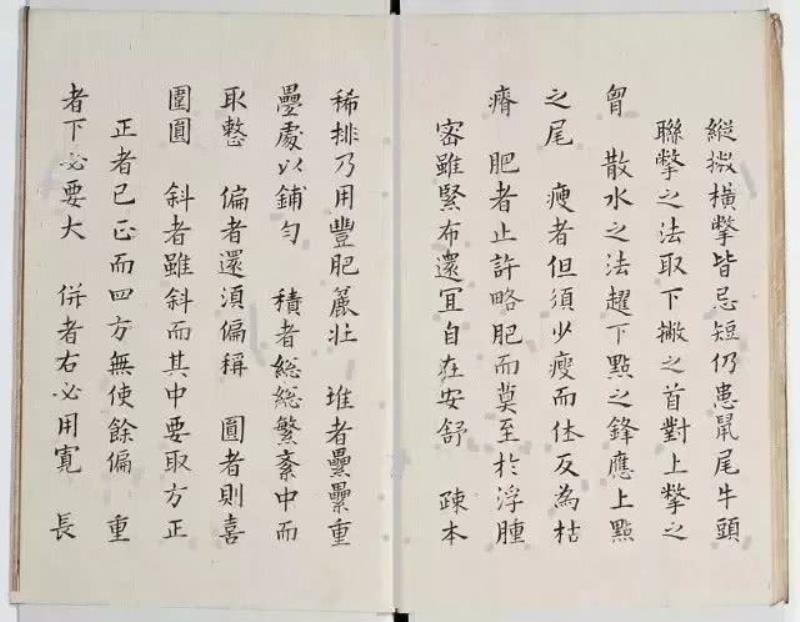 縱撇橫撆皆忌短仍患鼠尾牛頭
聯撆之法取下撇之首對上撆之
胷　散水之法趯下點之鋒應上點
之尾　瘦者但須少瘦而体反為枯
瘠　肥者止許略肥而莫至於浮腫
密雖緊布還宜自在安舒　疎本
稀排乃用豐肥麄壯　堆者壘壘重
疊處以鋪勻　積者総総繁紊中而
取整　偏者還湏偏稱　圓者則喜
圍圓　斜者雖斜而其中要取方正
正者已正而四方無使餘偏　重
者下必要大　併者右必用寬　長